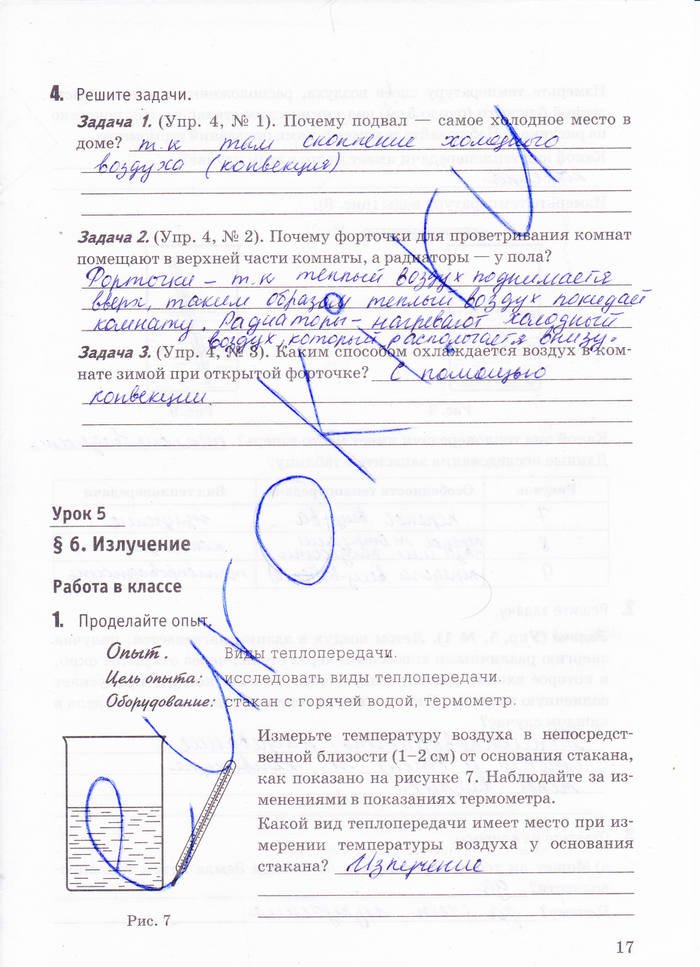 4. Решите задачи.
Задача 1. (Упр. 4, № 1). Почему подвал — самое холодное место в
доме? т.к там скопление холодного
воздуха (конвекция)
Задача 2. (Упр. 4, № 2). Почему форточки для проветривания комнат
помещают в верхней части комнаты, а радиаторы — у пола?
Форточки – т.к теплый воздух поднимается
вверх, таким образом теплый воздух покидает
комнату. Радиаторы – нагревают холодный
воздух, который располагается внизу.
Задача 3. (Упр. 4, № 3). Каким способом охлаждается воздух в ком-
нате зимой при открытой форточке? С помощью
конвекции.
Урок 5
§ 6. Излучение
Работа в классе
1. Проделайте опыт.
Опыт. Виды теплопередачи.
Цель опыта: исследовать виды теплопередачи.
Оборудование: стакан с горячей водой, термометр.
Измерьте температуру воздуха в непосредст-
венной близости (1–2 см) от основания стакана,
как показано на рисунке 7. Наблюдайте за из-
менениями в показаниях термометра.
Какой вид теплопередачи имеет место при из-
мерении температуры воздуха у основания
стакана? Излучение
Рис. 7
17